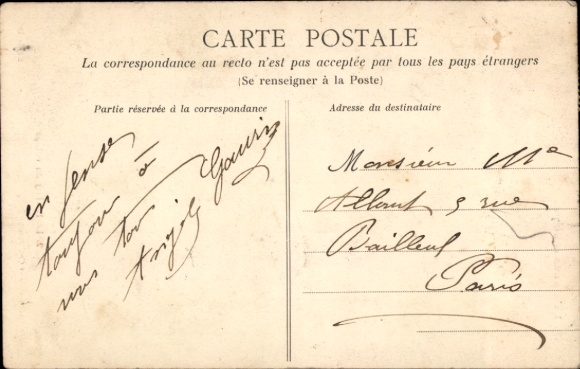 CARTE POSTALE
La correspondance au recto n'est pas acceptée par tous les pays étrangers
(Se renseigner à la Poste)
Partie réservée à la correspondance
Adresse du destinataire
en pense
toujour à
vous tous
Angèle
Monsieur Me
5 rue
Bailleul
Paris